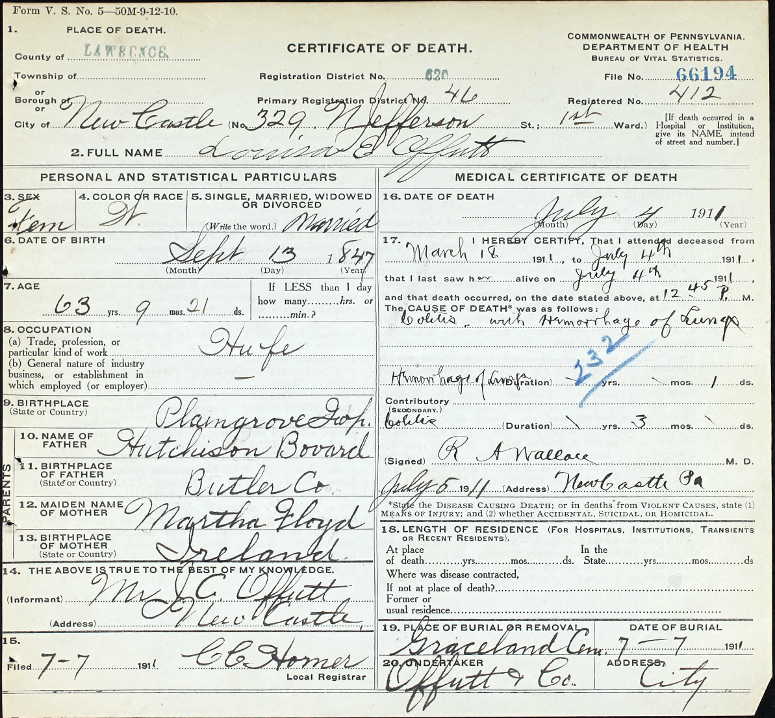 Form V. S. No. 5—50M-9-12-10.
1. PLACE OF DEATH.
County of LAWRENCE.
Township of
or
Borough of
or
City of New Castle (No. 329 N Jefferson St.; 1st Ward.)
CERTIFICATE OF DEATH.
Registration District No. 620
Primary Registration District No. 46
COMMONWEALTH OF PENNSYLVANIA.
DEPARTMENT OF HEALTH
BUREAU OF VITAL STATISTICS.
File No. 66194
Registered No. 412
[If death occurred in a Hospital or Institution, give its NAME instead of street and number.]
2. FULL NAME Louisa E Offutt
PERSONAL AND STATISTICAL PARTICULARS
3. SEX Fem
4. COLOR OR RACE W.
5. SINGLE, MARRIED, WIDOWED OR DIVORCED
(Write the word.) Married
6. DATE OF BIRTH
Sept 13 1847
(Month) (Day) (Year)
7. AGE
63 yrs. 9 mos. 21 ds.
If LESS than 1 day
how many hrs. or
min.?
8. OCCUPATION
(a) Trade, profession, or
particular kind of work H wfe
(b) General nature of industry
business, or establishment in
which employed (or employer) —
9. BIRTHPLACE
(State or Country) Plaingrove Twp.
PARENTS
10. NAME OF
FATHER Hutchison Bovard
11. BIRTHPLACE
OF FATHER
(State or Country) Butler Co.
12. MAIDEN NAME
OF MOTHER Martha Floyd
13. BIRTHPLACE
OF MOTHER
(State or Country) Ireland
14. THE ABOVE IS TRUE TO THE BEST OF MY KNOWLEDGE.
(Informant) Mr J. C. Offutt
(Address) New Castle,
15.
Filed 7-7 1911 C C Homer
Local Registrar
MEDICAL CERTIFICATE OF DEATH
16. DATE OF DEATH
July 4 1911
(Month) (Day) (Year)
17. I HEREBY CERTIFY, That I attended deceased from
March 18 1911, to July 4th 1911,
that I last saw her alive on July 4th 1911,
and that death occurred, on the date stated above, at 12 45 P. M.
The CAUSE OF DEATH* was as follows:
Colitis, with Hemorrhage of Lungs
232
Hemorrhage of Lungs (Duration) yrs. mos. 1 ds.
Contributory
(SECONDARY)
Colitis (Duration) yrs. 3 mos. ds.
(Signed) R A Wallace M. D.
July 5 1911 (Address) New Castle Pa
*State the DISEASE CAUSING DEATH; or in deaths from VIOLENT CAUSES, state (1)
MEANS OF INJURY; and (2) whether ACCIDENTAL, SUICIDAL, OR HOMICIDAL.
18. LENGTH OF RESIDENCE (FOR HOSPITALS, INSTITUTIONS, TRANSIENTS
OR RECENT RESIDENTS).
At place In the
of death yrs. mos. ds. State yrs. mos. ds
Where was disease contracted,
If not at place of death?
Former or
usual residence
19. PLACE OF BURIAL OR REMOVAL
Graceland Cem.
DATE OF BURIAL
7-7 1911
20. UNDERTAKER
Offutt & Co.
ADDRESS
City